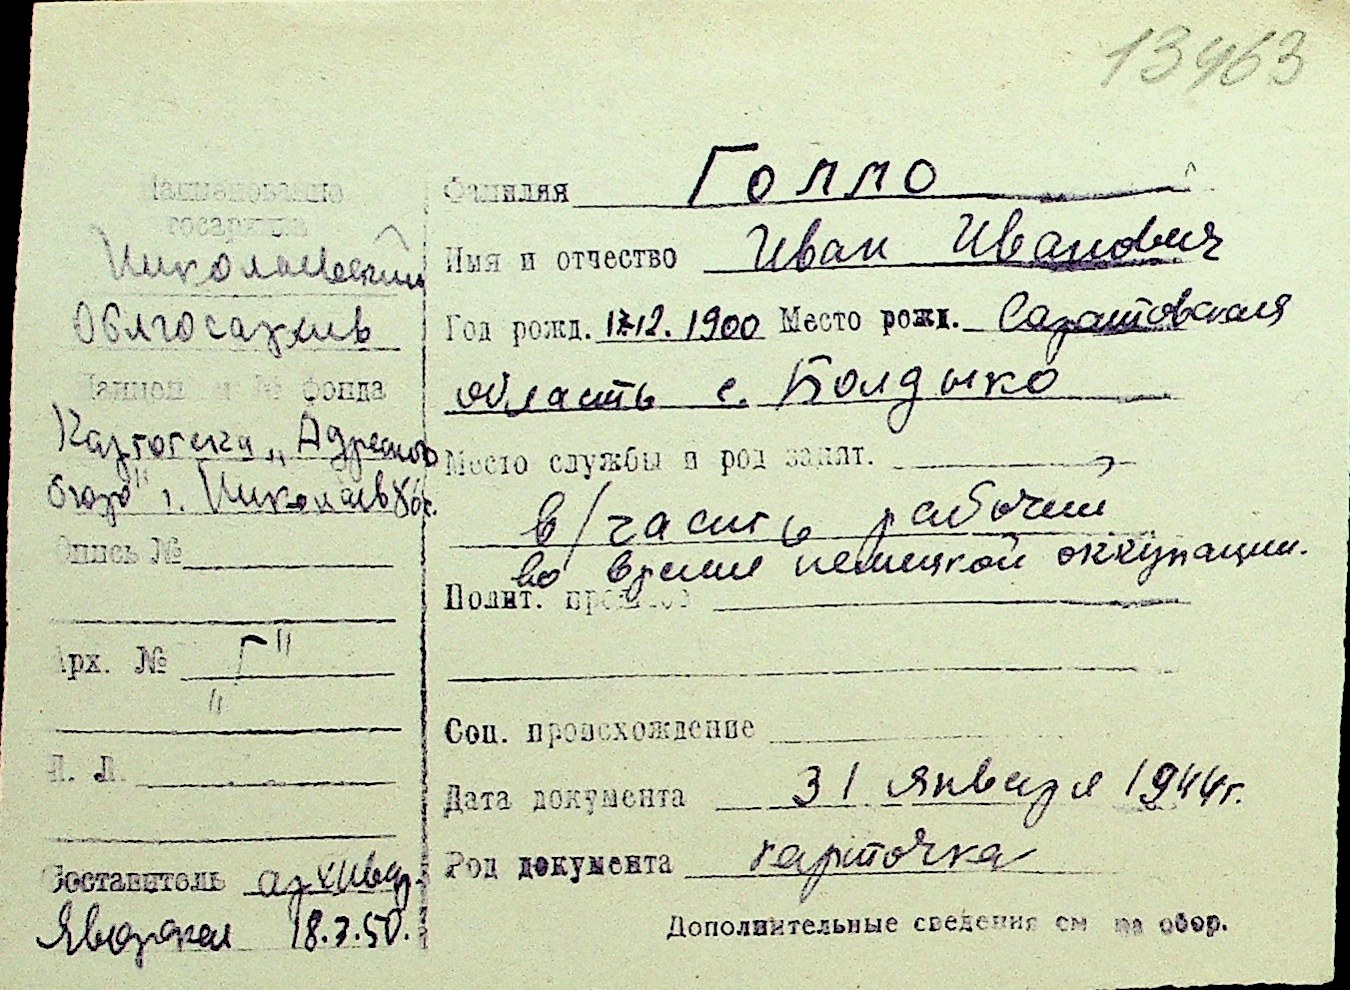 13463
Наименование
госархива
Николаевский
Облгосархив
фонда
Картотека „Адресного
бюро" г. Николаев
Опись №
Арх. № „Г"
Составитель архивар.
18.3.50.
Фамилия Голло
Имя и отчество Иван Иванович
Год рожд. 12.1900 Место рожд. Саратовская
область с. Болдыко
Место службы и род занят.
в/часть рабочий
во время немецкой оккупации.
Полит.
Соц. происхождение
Дата документа 31 января 1944г.
Род документа карточка
Дополнительные сведения см на обор.